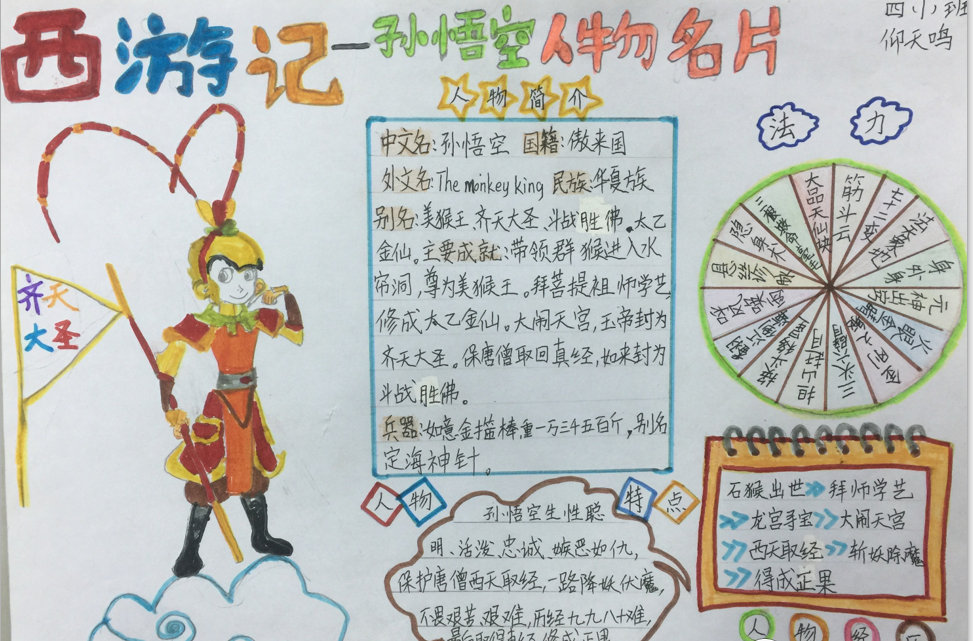 西游记—孙悟空人物名片
四小班
仰天鸣
人物简介
中文名:孙悟空 国籍:傲来国
外文名:The monkey king 民族:华夏族
别名:美猴王、齐天大圣、斗战胜佛。太乙
金仙。主要成就:带领群猴进入水
帘洞,尊为美猴王。拜菩提祖师学艺,
修成太乙金仙。大闹天宫,玉帝封为
齐天大圣。保唐僧取回真经,如来封为
斗战胜佛。
兵器:如意金箍棒,重一万三千五百斤,别名
定海神针。
法力
大品天仙诀
筋斗云
七十二变
法天象地
身外身
元神出窍
火眼金睛
三头六臂
担山赶月
隐身术
齐天
大圣
人物特点
孙悟空生性聪
明、活泼、忠诚、嫉恶如仇,
保护唐僧西天取经,一路降妖伏魔,
不畏艰苦艰难,历经九九八十难,
石猴出世 拜师学艺
龙宫寻宝 大闹天宫
西天取经 斩妖除魔
得成正果
人物经